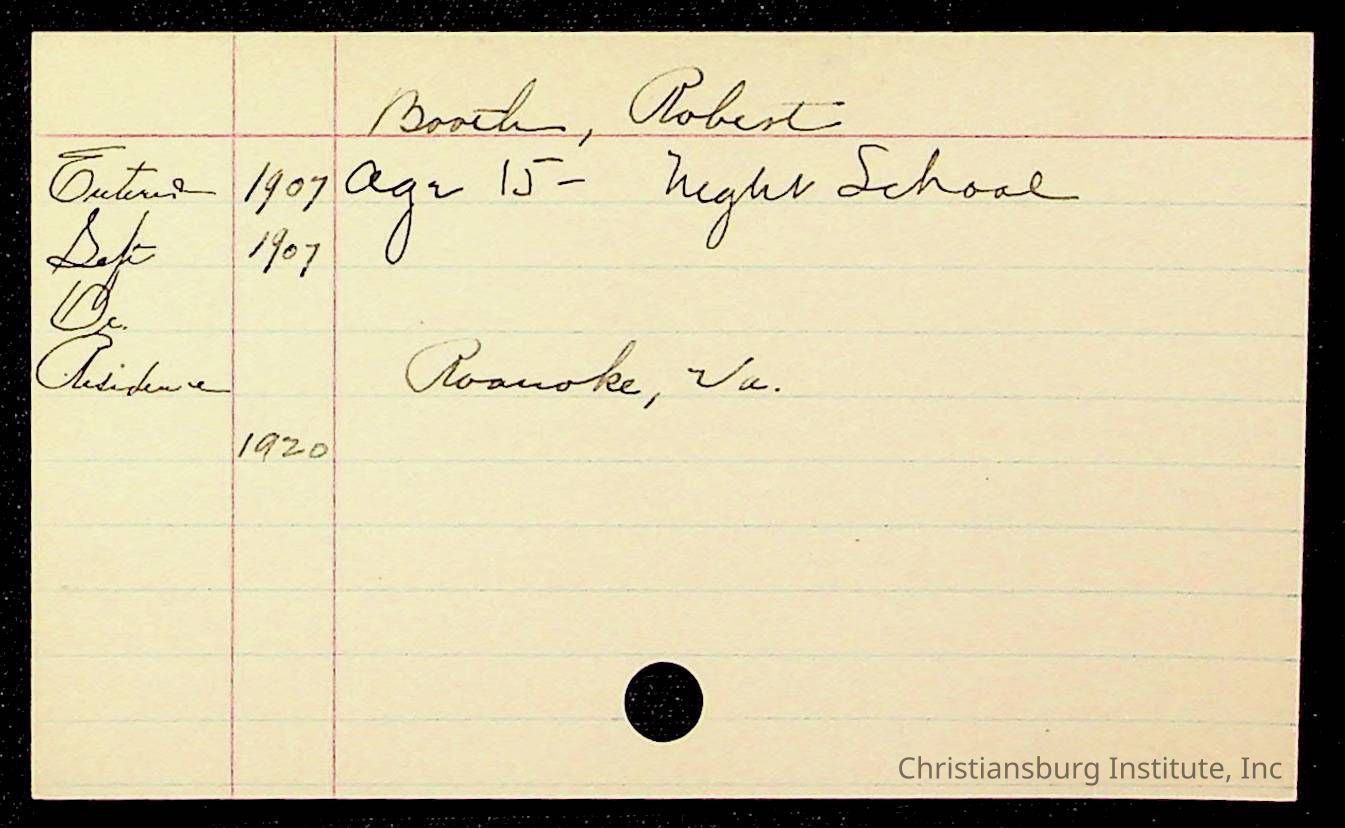 Booth, Robert
Entered 1907 Age 15- Night School
Left 1907
Residence Roanoke, Va.
1920
Christiansburg Institute, Inc